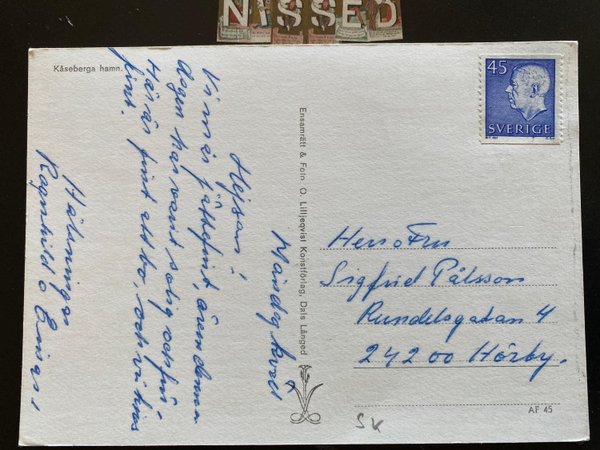 NISSED
Kåseberga hamn.
Måndag kväll
Hejsan!
Vi mår jättefint, även denna
dagen har varit solig och fin!
Här är fint att bo, och vi
fint.
Hälsningar
Ragnhild o Einar!
Ensamrätt & Foto O. Lilljeqvist Konstförlag, Dals Långed
45
SVERIGE
Herr o Fru
Sigfrid Pålsson
Rundelsgatan 4
242 00 Hörby.
AF 45
SK